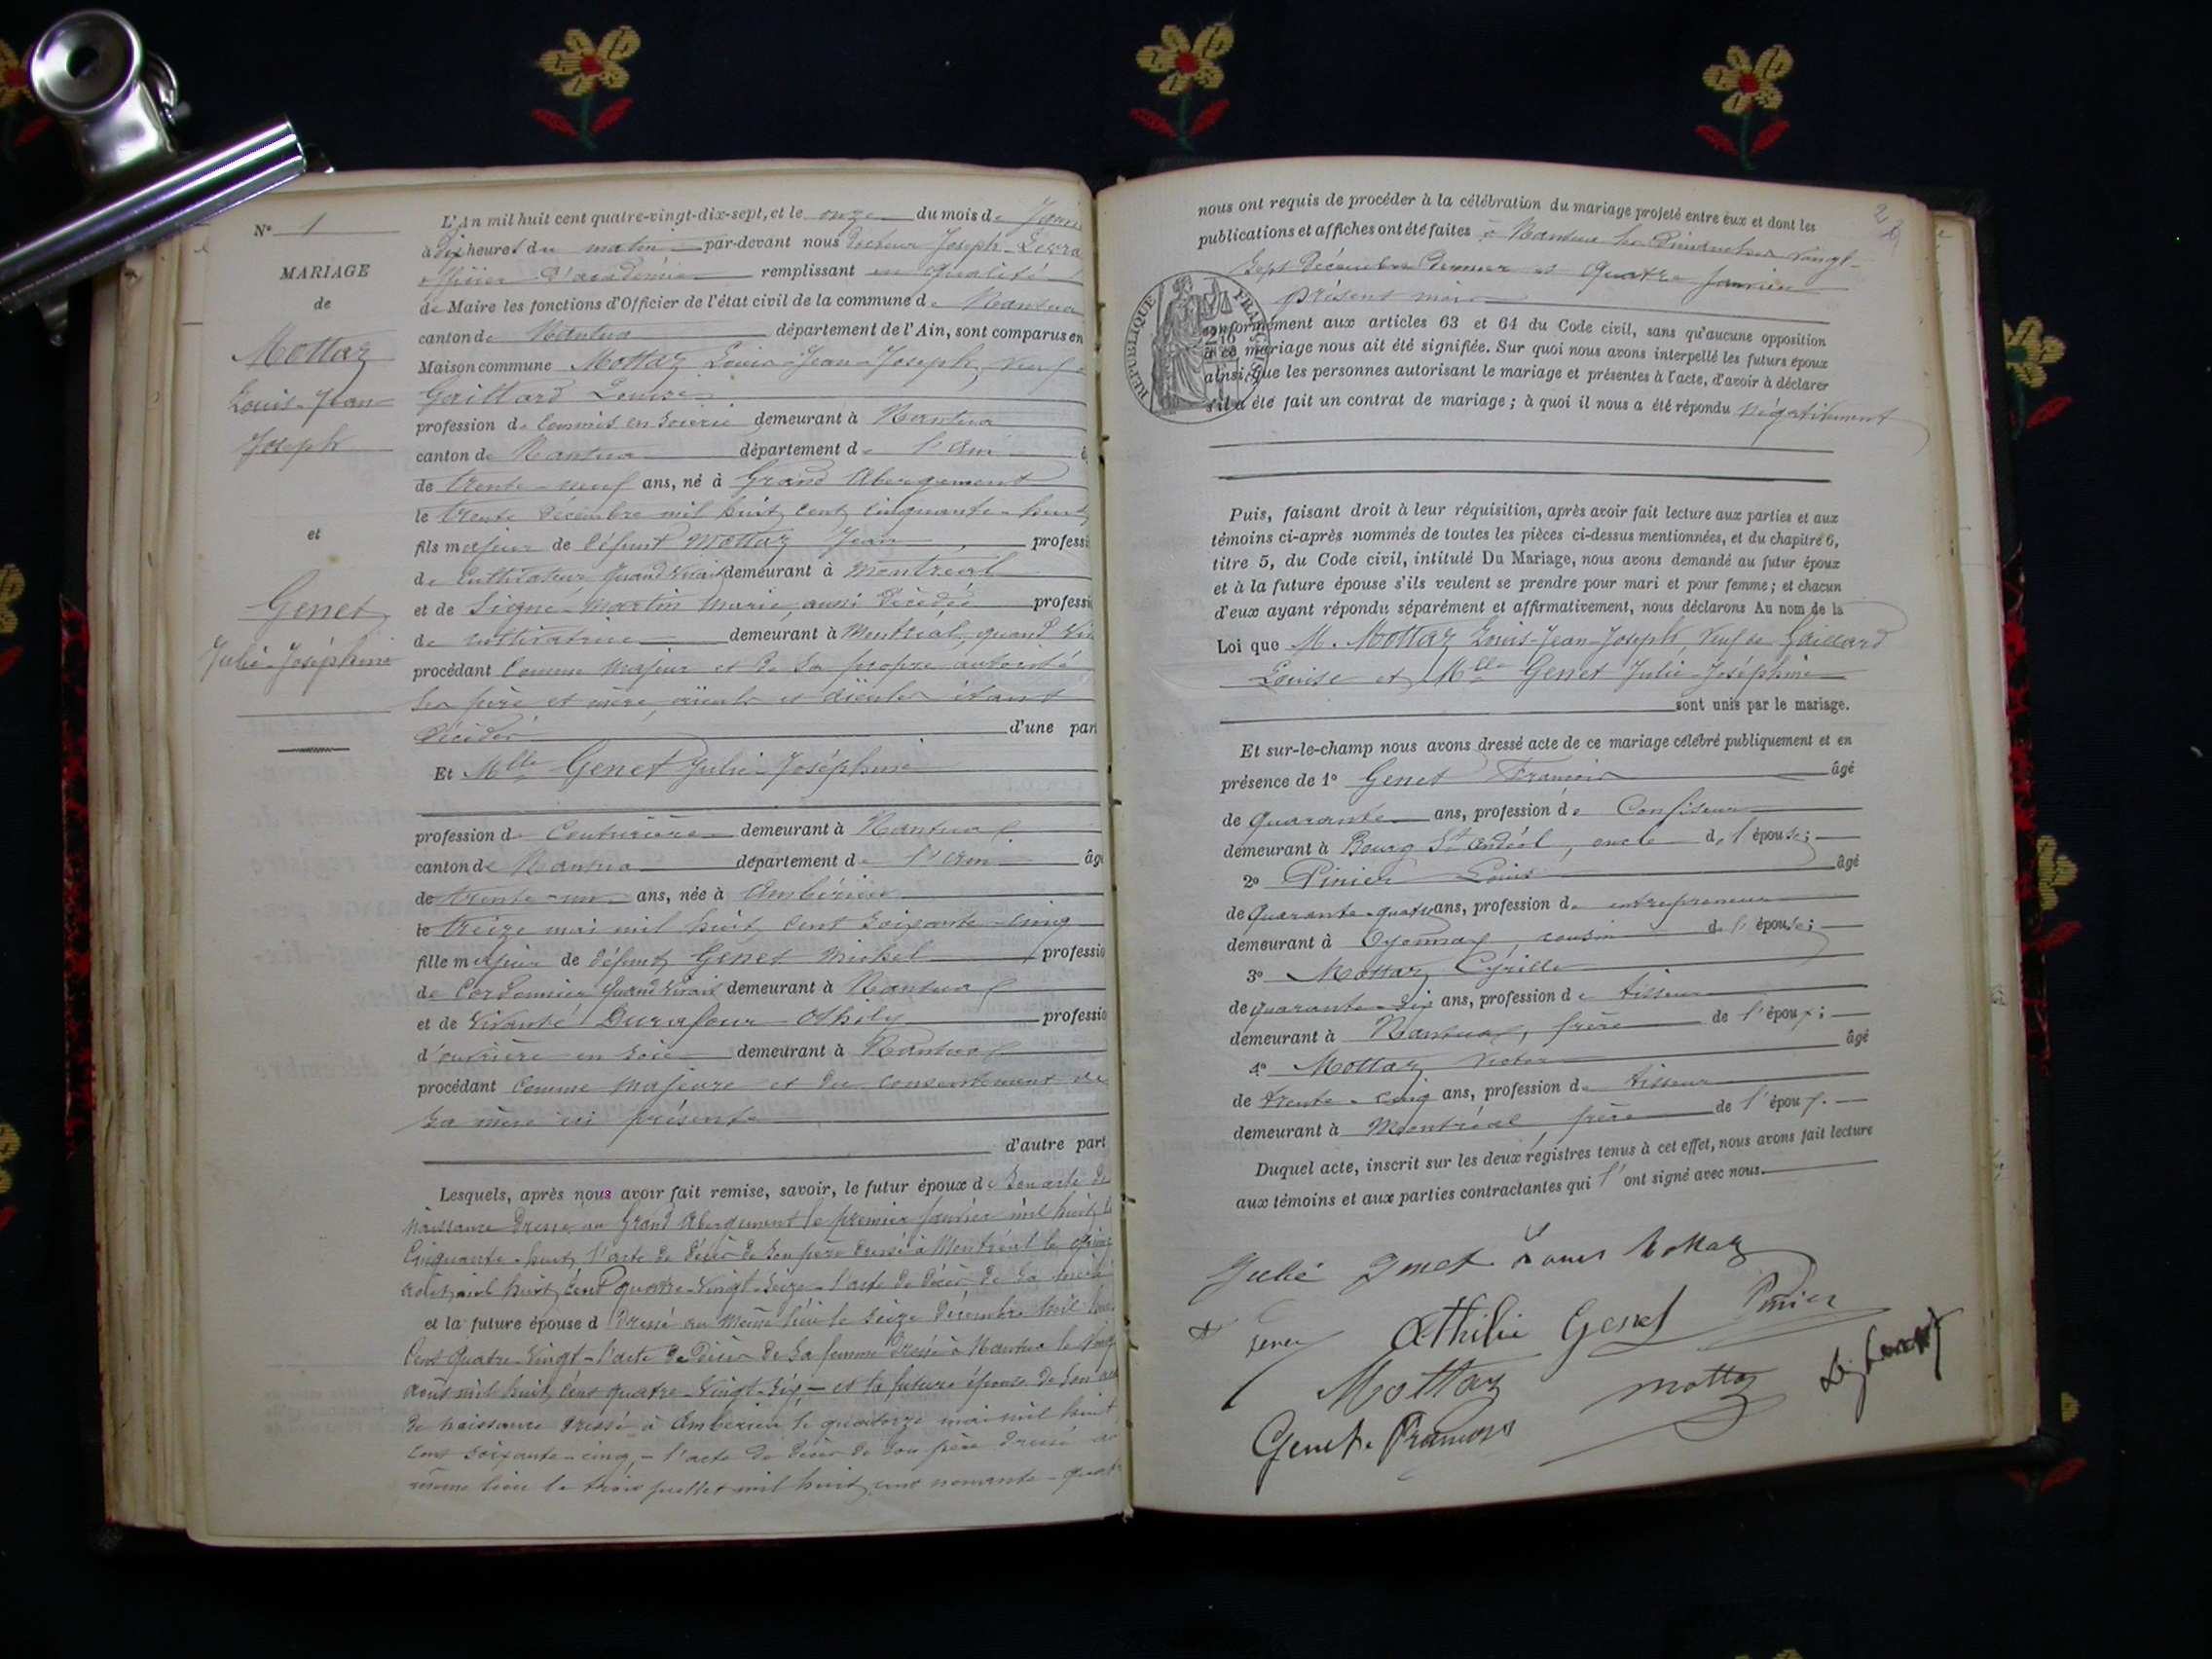 N° 1
MARIAGE
de
Mottaz
Louis-Jean
Joseph
et
Genet
Julie-Joséphine
L'An mil huit cent quatre-vingt-dix-sept, et le onze du mois de Janvi
à dix heures du matin par-devant nous Docteur Joseph
officier d'académie remplissant en qualité
de Maire les fonctions d'Officier de l'état civil de la commune de Nantua
canton de Nantua département de l'Ain, sont comparus en
Maison commune Mottaz Louis-Jean-Joseph, veuf
Gaillard Louise
profession de Commis en soierie demeurant à Nantua
canton de Nantua département de l'Ain
de trente-neuf ans, né à Grand Abergement
le trente décembre mil huit cent cinquante-huit
fils majeur de défunt Mottaz Jean professi
de cultivateur quand vivait demeurant à Montréal
et de Signé-Martin Marie, aussi décédée professi
de cultivatrice demeurant à Montréal, quand viv
procédant comme majeur et de sa propre autorité
ses père et mère, aïeuls et aïeules étant
décédés d'une part
Et Mlle Genet Julie-Joséphine
profession de Couturière demeurant à Nantua
canton de Nantua département de l'Ain âgé
de trente-un ans, née à Ambérieu
le treize mai mil huit cent soixante-cinq
fille majeure de défunt Genet Michel professio
de Cordonnier quand vivait demeurant à Nantua
et de vivante Durafour Othily professio
d'ouvrière en soie demeurant à Nantua
procédant comme majeure et du consentement de
sa mère ici présente
d'autre part
Lesquels, après nous avoir fait remise, savoir, le futur époux de son acte de
naissance dressé au Grand Abergement le premier janvier mil huit
cinquante-huit, l'acte de décès de son père dressé à Montréal le
août mil huit cent quatre-vingt-seize - l'acte de décès de sa mère
et la future épouse d dressé au même lieu le seize décembre mil
cent quatre-vingt - l'acte de décès de sa femme dressé à Nantua le
août mil huit cent quatre-vingt-six - et la future épouse de son
de naissance dressé à Ambérieu le quatorze mai mil huit
cent soixante-cinq, - l'acte de décès de son père dressé au
même lieu le trois juillet mil huit cent nonante-quatr
nous ont requis de procéder à la célébration du mariage projeté entre eux et dont les
publications et affiches ont été faites à Nantua les Dimanches vingt-
sept Décembre dernier et Quatre Janvier
présent mois
RÉPUBLIQUE FRANÇAISE
conformément aux articles 63 et 64 du Code civil, sans qu'aucune opposition
à ce mariage nous ait été signifiée. Sur quoi nous avons interpellé les futurs époux
ainsi que les personnes autorisant le mariage et présentes à l'acte, d'avoir à déclarer
s'il a été fait un contrat de mariage ; à quoi il nous a été répondu négativement
Puis, faisant droit à leur réquisition, après avoir fait lecture aux parties et aux
témoins ci-après nommés de toutes les pièces ci-dessus mentionnées, et du chapitre 6,
titre 5, du Code civil, intitulé Du Mariage, nous avons demandé au futur époux
et à la future épouse s'ils veulent se prendre pour mari et pour femme ; et chacun
d'eux ayant répondu séparément et affirmativement, nous déclarons Au nom de la
Loi que M. Mottaz Louis-Jean-Joseph, veuf de Gaillard
Louise et Mlle Genet Julie-Joséphine
sont unis par le mariage.
Et sur-le-champ nous avons dressé acte de ce mariage célébré publiquement et en
présence de 1° Genet François âgé
de quarante ans, profession de Confiseur
demeurant à Bourg St Andéol, oncle de l'épouse ;
2° Pinier Louis âgé
de quarante-quatre ans, profession de entrepreneur
demeurant à Oyonnax, cousin de l'épouse ;
3° Mottaz Cyrille
de quarante-six ans, profession de tisseur
demeurant à Nantua, frère de l'époux ;
4° Mottaz Victor âgé
de trente-cinq ans, profession de tisseur
demeurant à Montréal frère de l'époux.
Duquel acte, inscrit sur les deux régistres tenus à cet effet, nous avons fait lecture
aux témoins et aux parties contractantes qui l'ont signé avec nous.
Julie Genet Louis Mottaz
Othilie Genet Pinier
Mottaz mottaz
Genet François